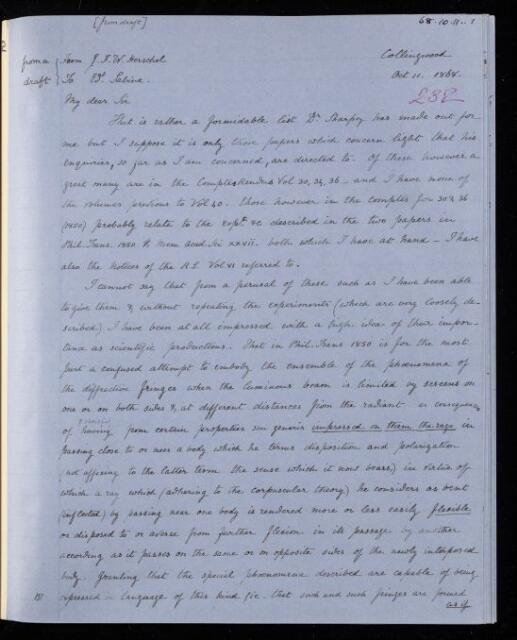 [from draft]
68-10-11-1
from a draft
From J.F.W. Herschel
Collingwood
To Ed. Sabine.
Oct 11. 1868.
My dear Sir
232
That is rather a formidable list Dr Sharpey has made out for
me but I suppose it is only those papers which concern light that his
enquiries, so far as I am concerned, are directed to. Of these however a
great many are in the Comptes Rendus Vol 30, 34, 36 — and I have none of
the volumes previous to Vol 40. Those however in the comptes for 30 & 36
(1850) probably relate to the expts. &c described in the two papers in
Phil. Trans. 1850 & Mem Acad. Sci XXVII. both which I have at hand — I have
also the Notices of the R.I. Vol VI referred to.
I cannot say that from a perusal of these such as I have been able
to give them &, without repeating the experiments (which are very loosely de-
scribed) I have been at all impressed with a high idea of their impor-
tance as scientific productions. That in Phil. Trans 1850 is for the most
part a confused attempt to embody the ensemble of the phænomena of
the diffractive fringes when the luminous beam is limited by screens on
one or on both sides &, at different distances from the radiant as consequences
of having from certain properties sui generis impressed on them the rays in
passing close to or near a body which he terms disposition and polarization
(not affixing to the latter term the sense which it now bears) in virtue of
which a ray which (adhering to the corpuscular theory) he considers as bent
(inflected) by passing near one body is rendered more or less easily flexible
or disposed to or averse from further flexion in its passage by another
according as it passes on the same or on opposite sides of the newly interposed
body. Granting that the special phænomena described are capable of being
expressed in language of this kind (ie. that such and such fringes are formed
as if